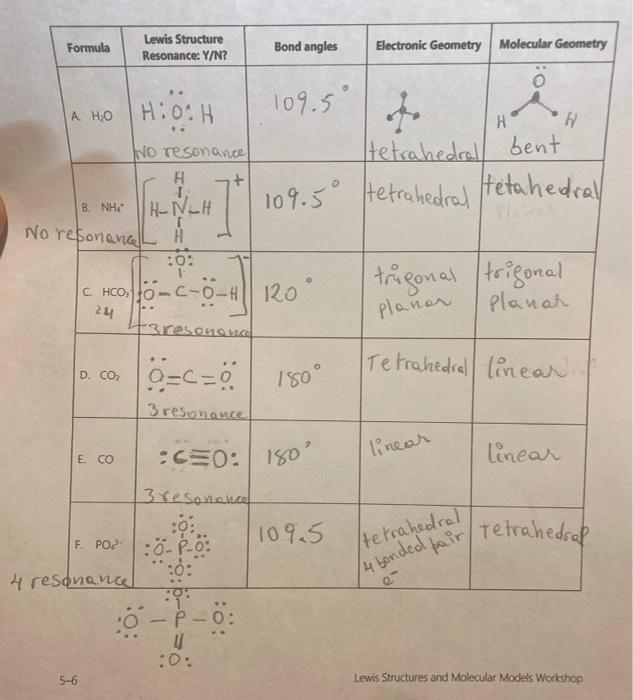 Formula
Lewis Structure
Resonance: Y/N?
Bond angles
Electronic Geometry
Molecular Geometry
A. H₂O
H:Ö:H
NO resonance
109.5°
tetrahedral
Ö
H H
bent
B. NH₄⁺
H
H-N-H
H
+
No resonance
109.5°
tetrahedral
tetahedral
Planar
C. HCO₃⁻
24
:O:
O-C-O-H
3 resonance
120°
trigonal
planar
trigonal
Planar
D. CO₂
O=C=O
3 resonance
180°
Tetrahedral
linear
E. CO
:C≡O:
3 resonance
180°
linear
linear
F. PO₄³⁻
:O:
:O-P-O:
:O:
4 resonance
109.5
tetrahedral
4 bonded pair
e⁻
Tetrahedral
:O:
:O-P-O:
:O:
5-6
Lewis Structures and Molecular Models Workshop